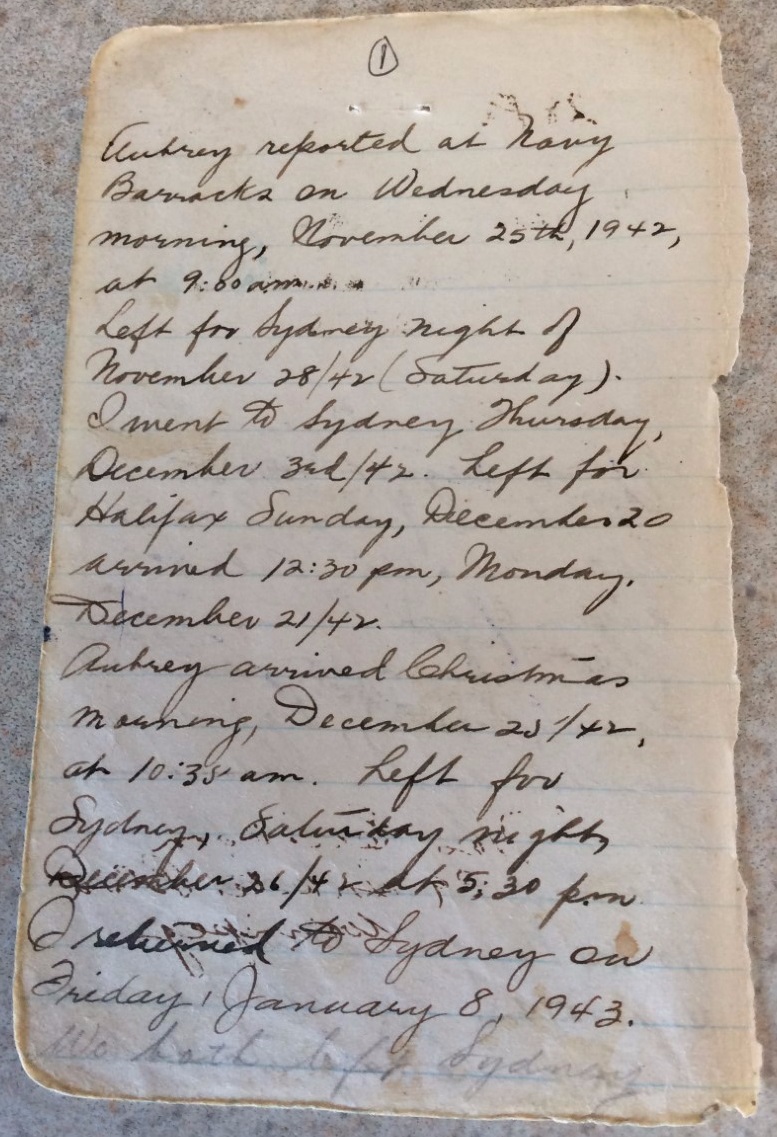 1
Aubrey reported at Navy
Barracks on Wednesday
morning, November 25th, 1942,
at 9:00 am.
Left for Sydney night of
November 28/42 (Saturday).
I went to Sydney Thursday,
December 3rd/42. Left for
Halifax Sunday, December 20
arrived 12:30 pm, Monday,
December 21/42.
Aubrey arrived Christmas
morning, December 25/42,
at 10:35 am. Left for
Sydney, Saturday night,
December 26/42 at 5:30 pm
I returned to Sydney on
Friday, January 8, 1943.
We both left Sydney